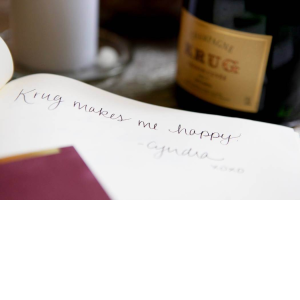 CHAMPAGNE
KRUG
Krug makes me happy
-Cyndra
xoxo